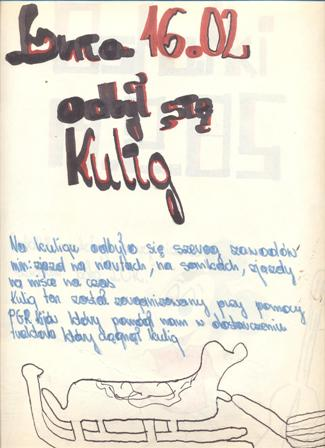 Dnia 16.02
odbył się
Kulig
Na kuligu odbyło się szereg zawodów
min: zjazd na nartach, na sankach, zjazdy
na misce na czas
Kulig ten został zorganizowany przy pomocy
PGR który pomógł nam w dostarczeniu
traktora który ciągnął kulig